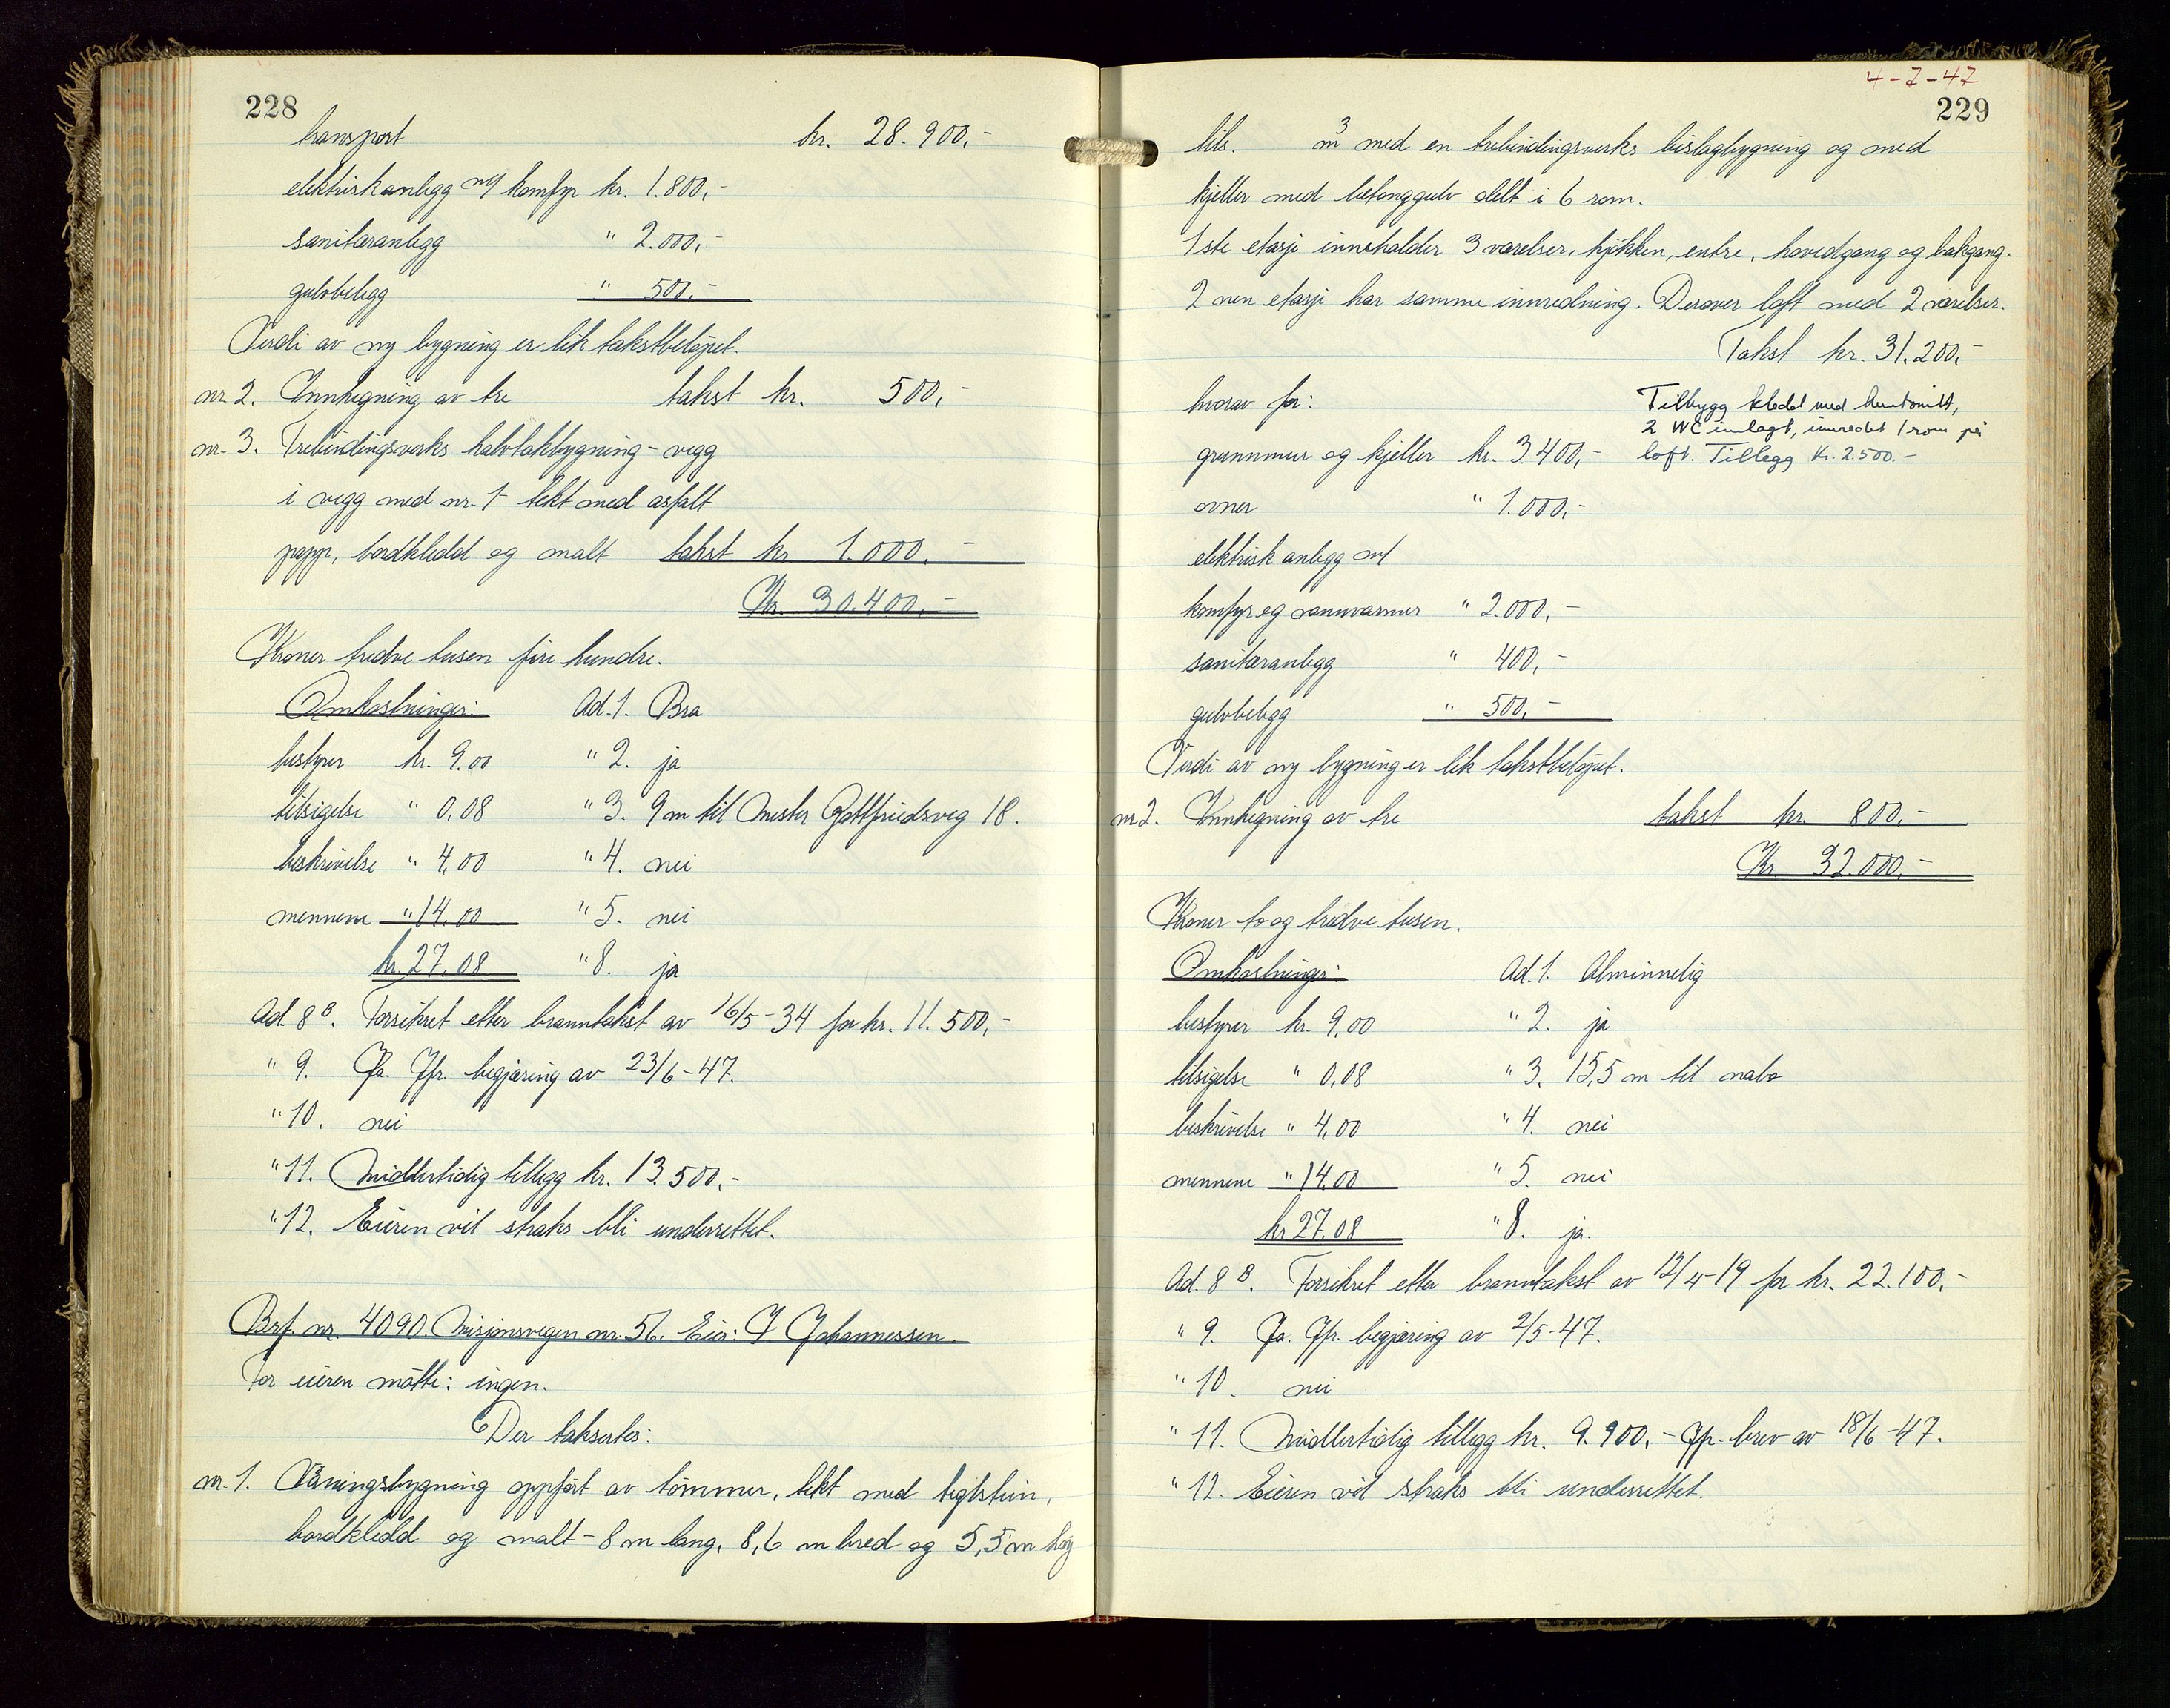 228
transport kr. 28.900,-
elektriskanlegg m/ komfyr kr. 1.800,-
sanitæranlegg " 2.000,-
gulvbelegg " 500,-
Verdi av ny bygning er lik takstbeløpet.
nr. 2. Innhegning av tre takst kr. 500,-
nr. 3. Trebindingsverks halvtakbygning - vegg
i vegg med nr. 1 - tekt med asfalt
papp, bordkledd og malt takst kr. 1.000,-
Kr. 30.400,-
Kroner tredve tusen fire hundre.
Omkostninger: Ad. 1. Bra
bestyrer kr. 9.00 " 2. ja
tilsigelse " 0,08 " 3. 9 m til Mester Gottfriedsveg 18.
beskrivelse " 4,00 " 4. nei
mennene " 14.00 " 5. nei
kr. 27.08 " 8. ja
Ad. 8 B. Forsikret etter branntakst av 16/5-34 for kr. 11.500,-
" 9. Ja. Jfr. begjæring av 23/6-47.
" 10. nei
" 11. Midlertidig tillegg kr. 13.500,-
" 12. Eieren vil straks bli underrettet.
Brf. nr. 4090. Misjonsvegen nr. 56. Eier: J Johannessen.
For eieren møtte: ingen.
Der taksertes:
nr. 1. Våningsbygning oppført av tømmer, tekt med teglstein,
bordkledd og malt - 8 m lang, 8,6 m bred og 5,5 m høy
4-7-47
229
tils. m3 med en trebindingsverks bislagbygning og med
kjeller med betonggulv delt i 6 rom.
1ste etasje inneholder 3 værelser, kjøkken, entre, hovedgang og bakgang.
2 nen etasje har samme innredning. Derover loft med 2 værelser.
Takst kr. 31.200,-
hvorav for: Tilbygg kledd med
2 WC innlagt, innredet 1 rom på
grunnmur og kjeller kr. 3.400,- loft. Tillegg Kr. 2.500.-
ovner " 1.000,-
elektrisk anlegg m/
komfyr og vannvarmer " 2.000,-
sanitæranlegg " 400,-
gulvbelegg " 500,-
Verdi av ny bygning er lik takstbeløpet.
nr 2. Innhegning av tre takst kr. 800,-
Kr 32.000,-
Kroner to og tredve tusen.
Omkostninger: Ad. 1. Alminnelig
bestyrer kr. 9,00 " 2. ja
tilsigelse " 0,08 " 3. 15,5 m til nabo
beskrivelse " 4,00 " 4. nei
mennene " 14.00 " 5. nei
kr 27.08 " 8. ja.
Ad. 8 B. Forsikret etter branntakst av 12/4-19 for kr. 22.100,-
" 9. Ja. Jfr. begjæring av 2/5-47.
" 10. nei
" 11. Midlertidig tillegg kr. 9.900,- Jfr. brev av 18/6-47.
" 12. Eieren vil straks bli underrettet.